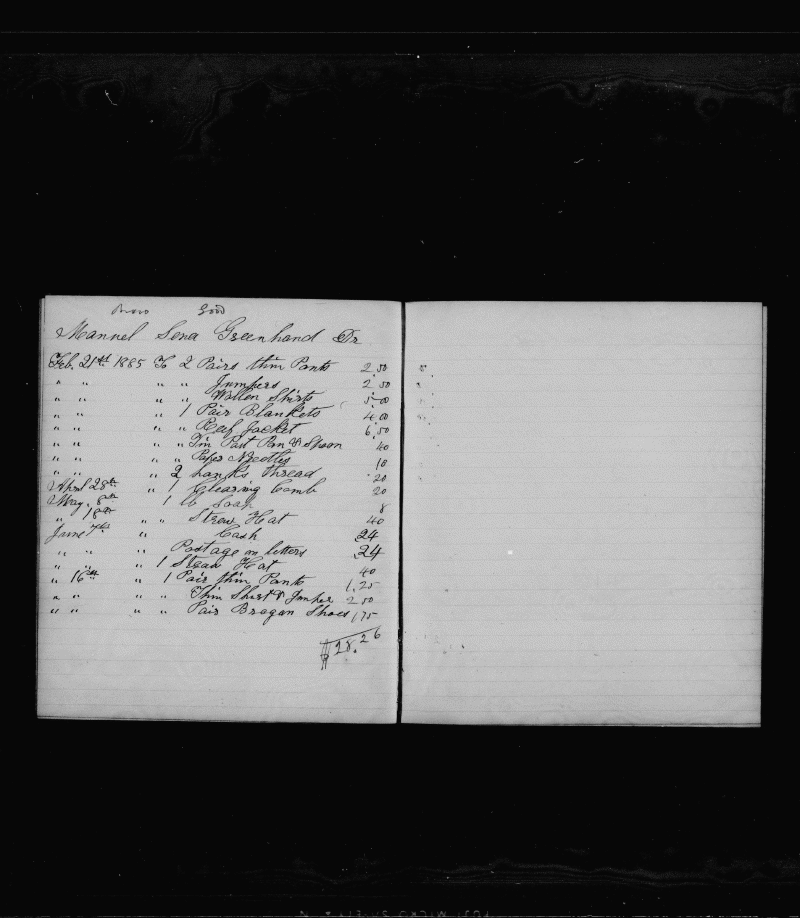 Good
Mannel Sena Greenhand Dr
Feb. 21st 1885 To 2 Pairs thin Pants 2.50
" " " " Jumpers 2 50
" " " " Wollen Shirts 5.00
" " " 1 Pair Blankets 4.00
" " " " Reef Jacket 6.50
" " " " Tin Pot Pan & Spoon 40
" " " " Paper Needles 10
" " " 2 hanks thread 20
April 28th " 1 Clearing Comb 20
May. 8th 1 lb Soap 8
" 18th " " Straw Hat 40
June 7th " Cash 24
" " " Postage on letters 24
" " " 1 Straw Hat 40
" 16th " 1 Pair thin Pants 1,25
" " " " Thin Shirt & Jumper 2 50
" " " " Pair Brogan Shoes 1,75
$28.26